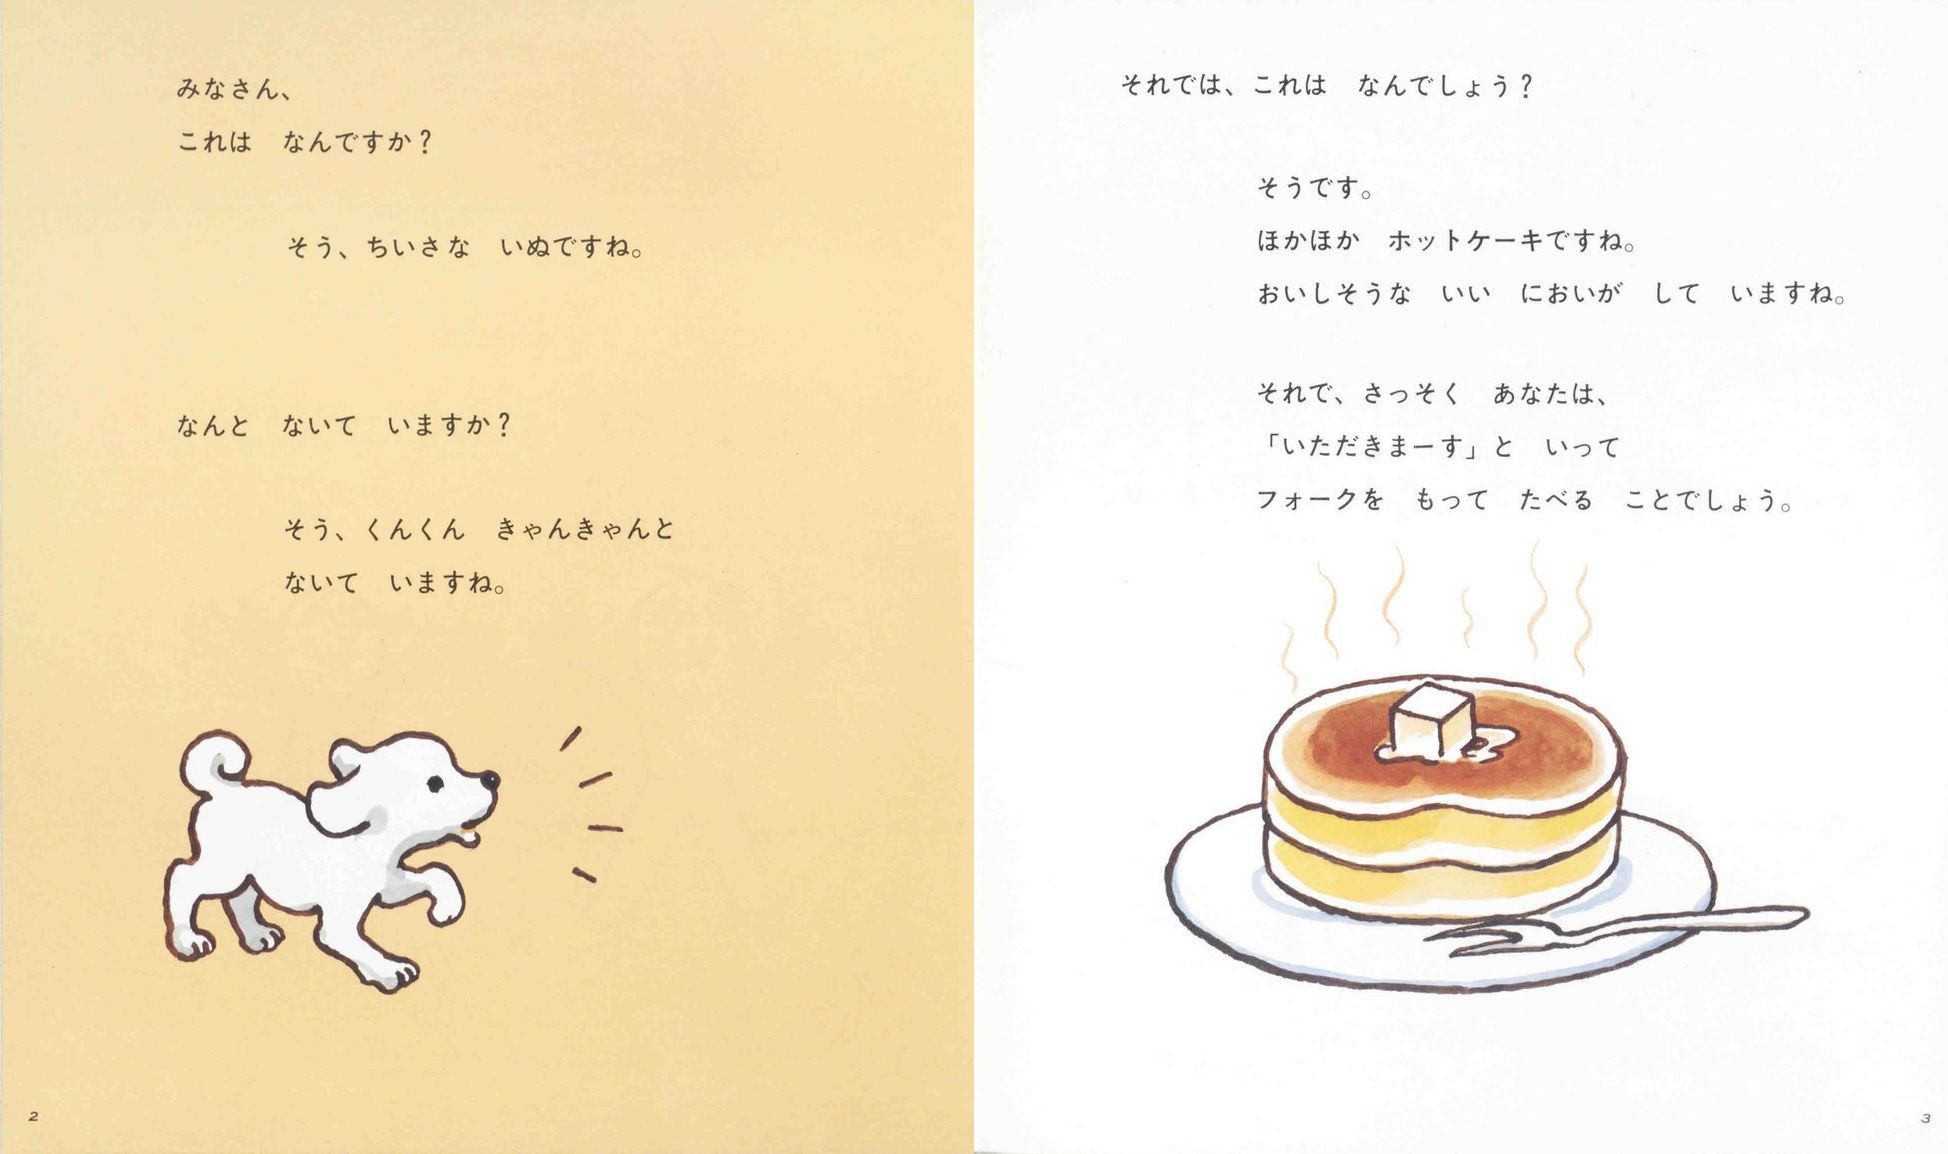 みなさん、
これは　なんですか？
そう、ちいさな　いぬですね。
なんと　ないて　いますか？
そう、くんくん　きゃんきゃんと
ないて　いますね。
2
それでは、これは　なんでしょう？
そうです。
ほかほか　ホットケーキですね。
おいしそうな　いい　においが　して　いますね。
それで、さっそく　あなたは、
「いただきまーす」と　いって
フォークを　もって　たべる　ことでしょう。
3